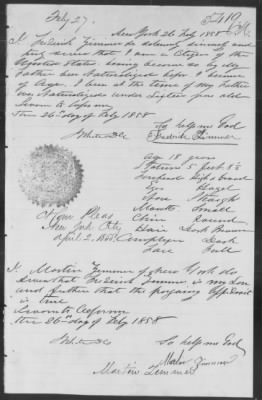 Feby 27.
5419
New York 26 Feby 1858
I Frederick Zimmer do solemnly sincerely and
truly swear that I am a Citizen of the
United States having become so by my
Father being Naturalized before I became
of Age. I was at the time of my Father
being Naturalized under Sixteen years old
Sworn to before me
this 26 day of Feby 1858
So help me God
Frederick Zimmer
Age 18 years
Stature 5 feet 8½
Forehead High & broad
Eyes Hazel
Nose Straight
Mouth Small
Chin Round
Hair Dark Brown
Complexion Dark
Face Full
Com Pleas
New York City
April 2, 1855
I Martin Zimmer of New York do
Swear that Frederick Zimmer is my Son
and further that the foregoing Affidavit
is true
Sworn to before me
this 26th day of Feby 1858
So help me God
Martin Zimmer
Martin Zimmer